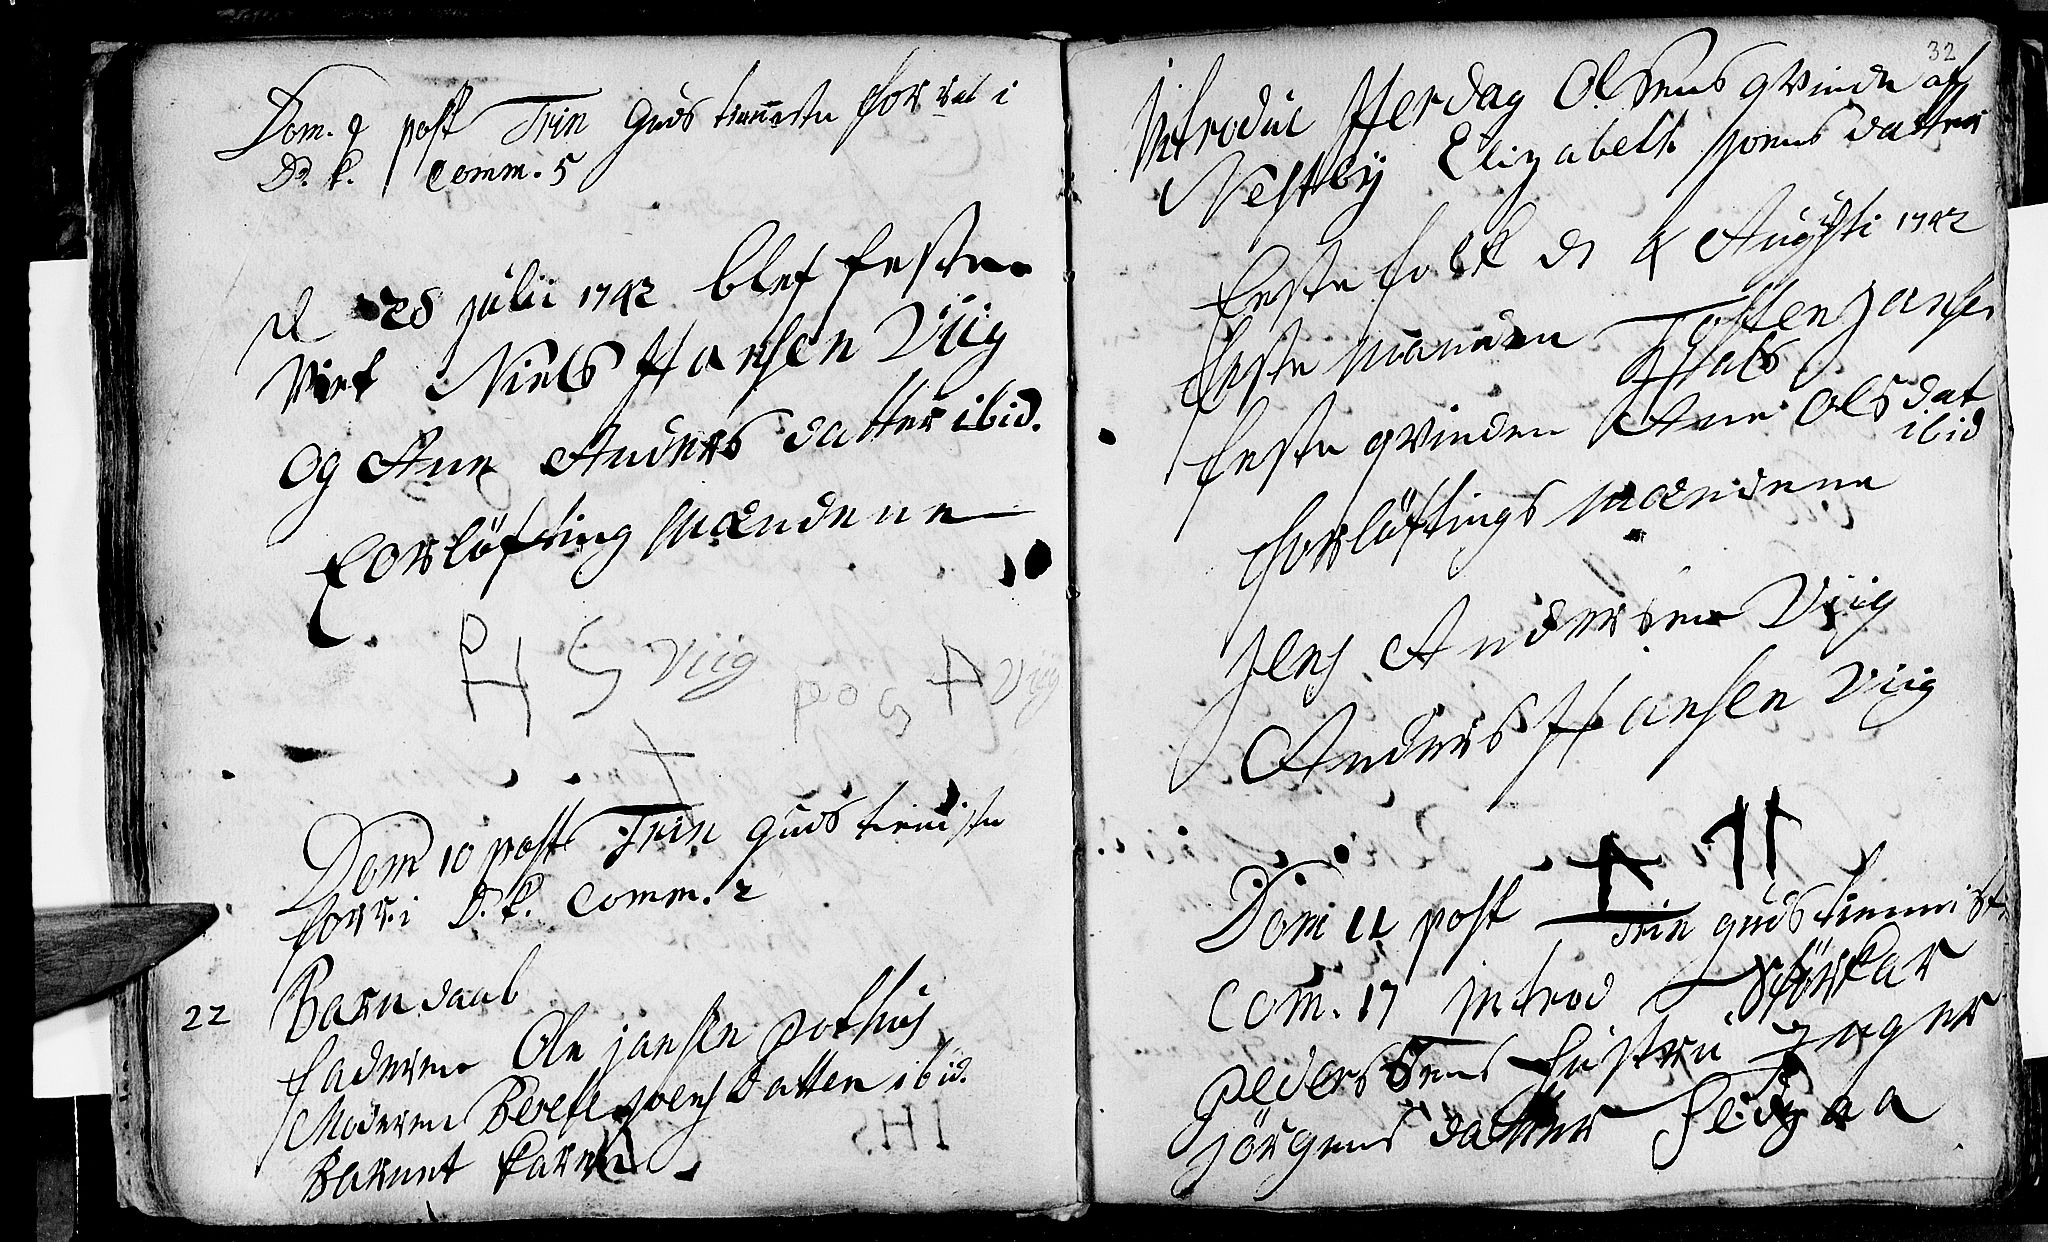 Dom. 9 post Trin Guds tienneste forret i
D. k. Comm. 5
d 28 julii 1742 blef festen
Viet Niels Hansen Viig
Og Ane Anders datter ibid.
forløfting Mændene
P H S Viig P O S A Viig
Dom 10 post Trin guds tieniste
forr. i D. k. Comm. 2
22 Barn daab
faderen Ole jansen pothus
Moderen Berete joens datter ibid.
Barnet karen
32
Introduc Herdag Olsens qvinde af
Nestby Elizabeth joens datter
feste folk d 4 Augusti 1742
feste manden Tosten jansen
Hals
feste qvinden Ane Olsdat
ibid
forløftings mændene
Jens Andersen Viig
Anders Hansen Viig
Dom 11 post Trin guds tienniste
Com. 17 introd Størkar
Peders Søns hustru Inger
jørgens datter